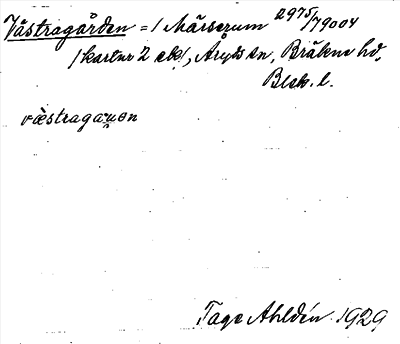 Västragården = / Mårserum 2975/79004
/kartur 2 ekbl/, Åryds sn, Bräkne hd,
Blek. l.
væstragaṷen
Tage Ahldén 1929